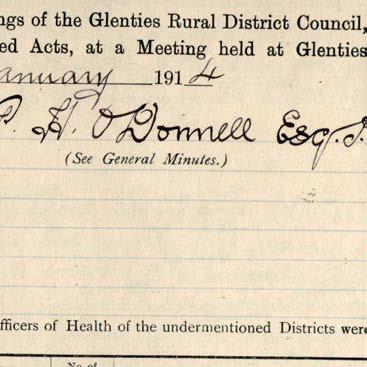 ngs of the Glenties Rural District Council,
ed Acts, at a Meeting held at Glenties
anuary 1914
P. H. O'Donnell Esq. J.
(See General Minutes.)
fficers of Health of the undermentioned Districts were
No. of